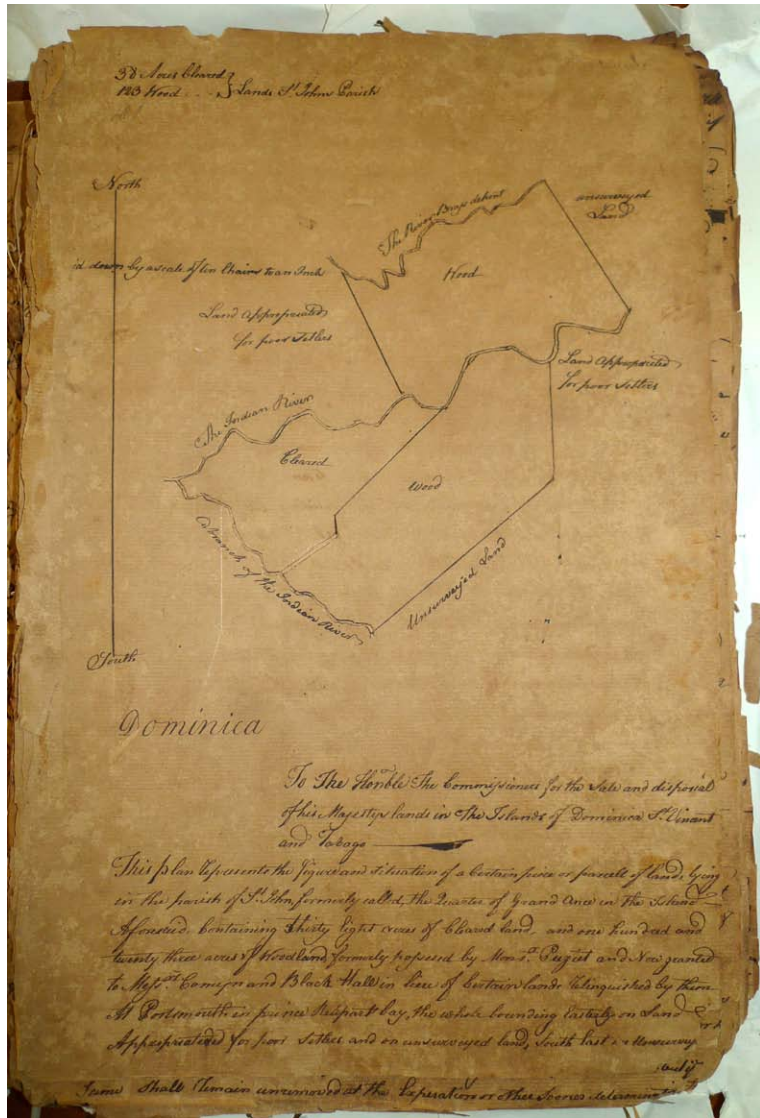 38 Acres Cleared
123 Wood } Lands St John Parish
North
South
'd down by a scale of ten Chains to an Inch
The River Burys dehent
unsurveyed
Land
Wood
Land Appropriated
for poor Setlers
Land Appropriated
for poor Setlers
The Indian River
Cleared
Wood
A branch of the Indian River
Unsurveyed Land
Dominica
To The Honble The Commissioners for the Sale and disposal
of his Majestys lands in The Islands of Dominica St Vincant
and Tobago
This plan Represents the figure and situation of a Certain piece or parcell of lands lying
in the parish of St John, formerly called, the Quarter of Grand Ance in the Island
Aforesaid. Containing thirty Eight acres of Cleared land, and one hundred and
twenty three acres of Woodland, formerly possesed by Monsr. Puguet and Now granted
to Messrs and Black Hall in lieu of Certain lands Relinquished by them
At Portsmouth in prince Ruparts bay, the whole bounding Easterly on Land
Appropriateded for poor Setlers and on unsurveyed land, South East Unsurvey
shall Remain unremoved at the Experation or other Sooner determination